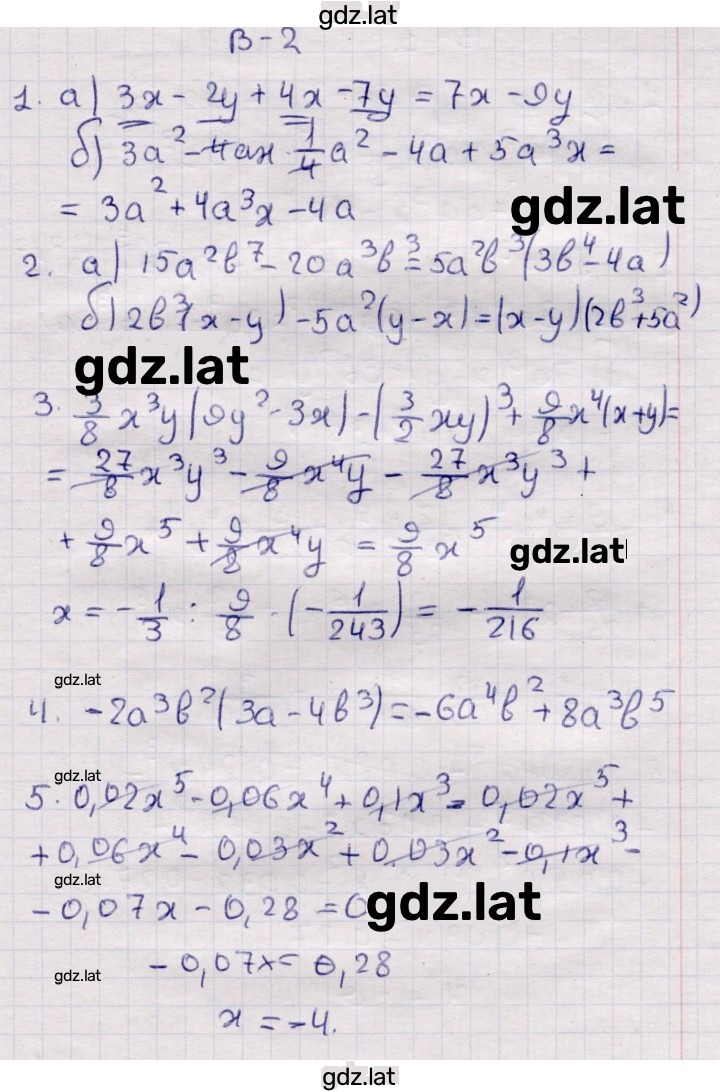 gdz.lat
В-2
1. а) 3x - 2y + 4x - 7y = 7x - 9y
б) 3a² - 4ax · 1/4 a² - 4a + 5a³x =
= 3a² + 4a³x - 4a
gdz.lat
2. а) 15a²b⁷ - 20a³b³ = 5a²b³(3b⁴ - 4a)
б) 2b³(x - y) - 5a²(y - x) = (x - y)(2b³ + 5a²)
gdz.lat
3. 3/8 x³y(9y² - 3x) - (3/2 xy)³ + 9/8 x⁴(x + y) =
= 27/8 x³y³ - 9/8 x⁴y - 27/8 x³y³ +
+ 9/8 x⁵ + 9/8 x⁴y = 9/8 x⁵
gdz.lat
x = -1/3 : 9/8 · (-1/243) = -1/216
gdz.lat
4. -2a³b²(3a - 4b³) = -6a⁴b² + 8a³b⁵
gdz.lat
5. 0,02x⁵ - 0,06x⁴ + 0,1x³ - 0,02x⁵ +
+ 0,06x⁴ - 0,03x² + 0,03x² - 0,1x³ -
gdz.lat
- 0,07x - 0,28 = 0
gdz.lat
- 0,07x = 0,28
gdz.lat
x = -4.
gdz.lat